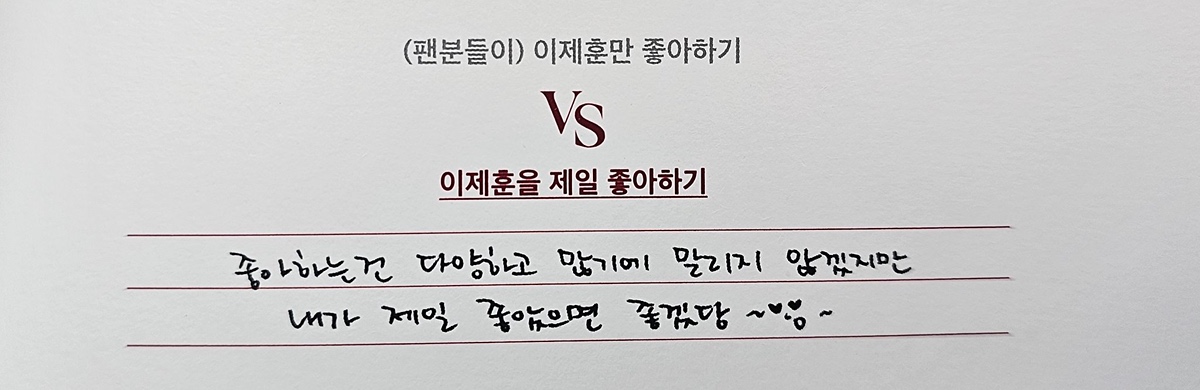 (팬분들이) 이제훈만 좋아하기
VS
이제훈을 제일 좋아하기
좋아하는건 다양하고 많기에 말리지 않겠지만
내가 제일 좋았으면 좋겠당 ~♥.♥ ~